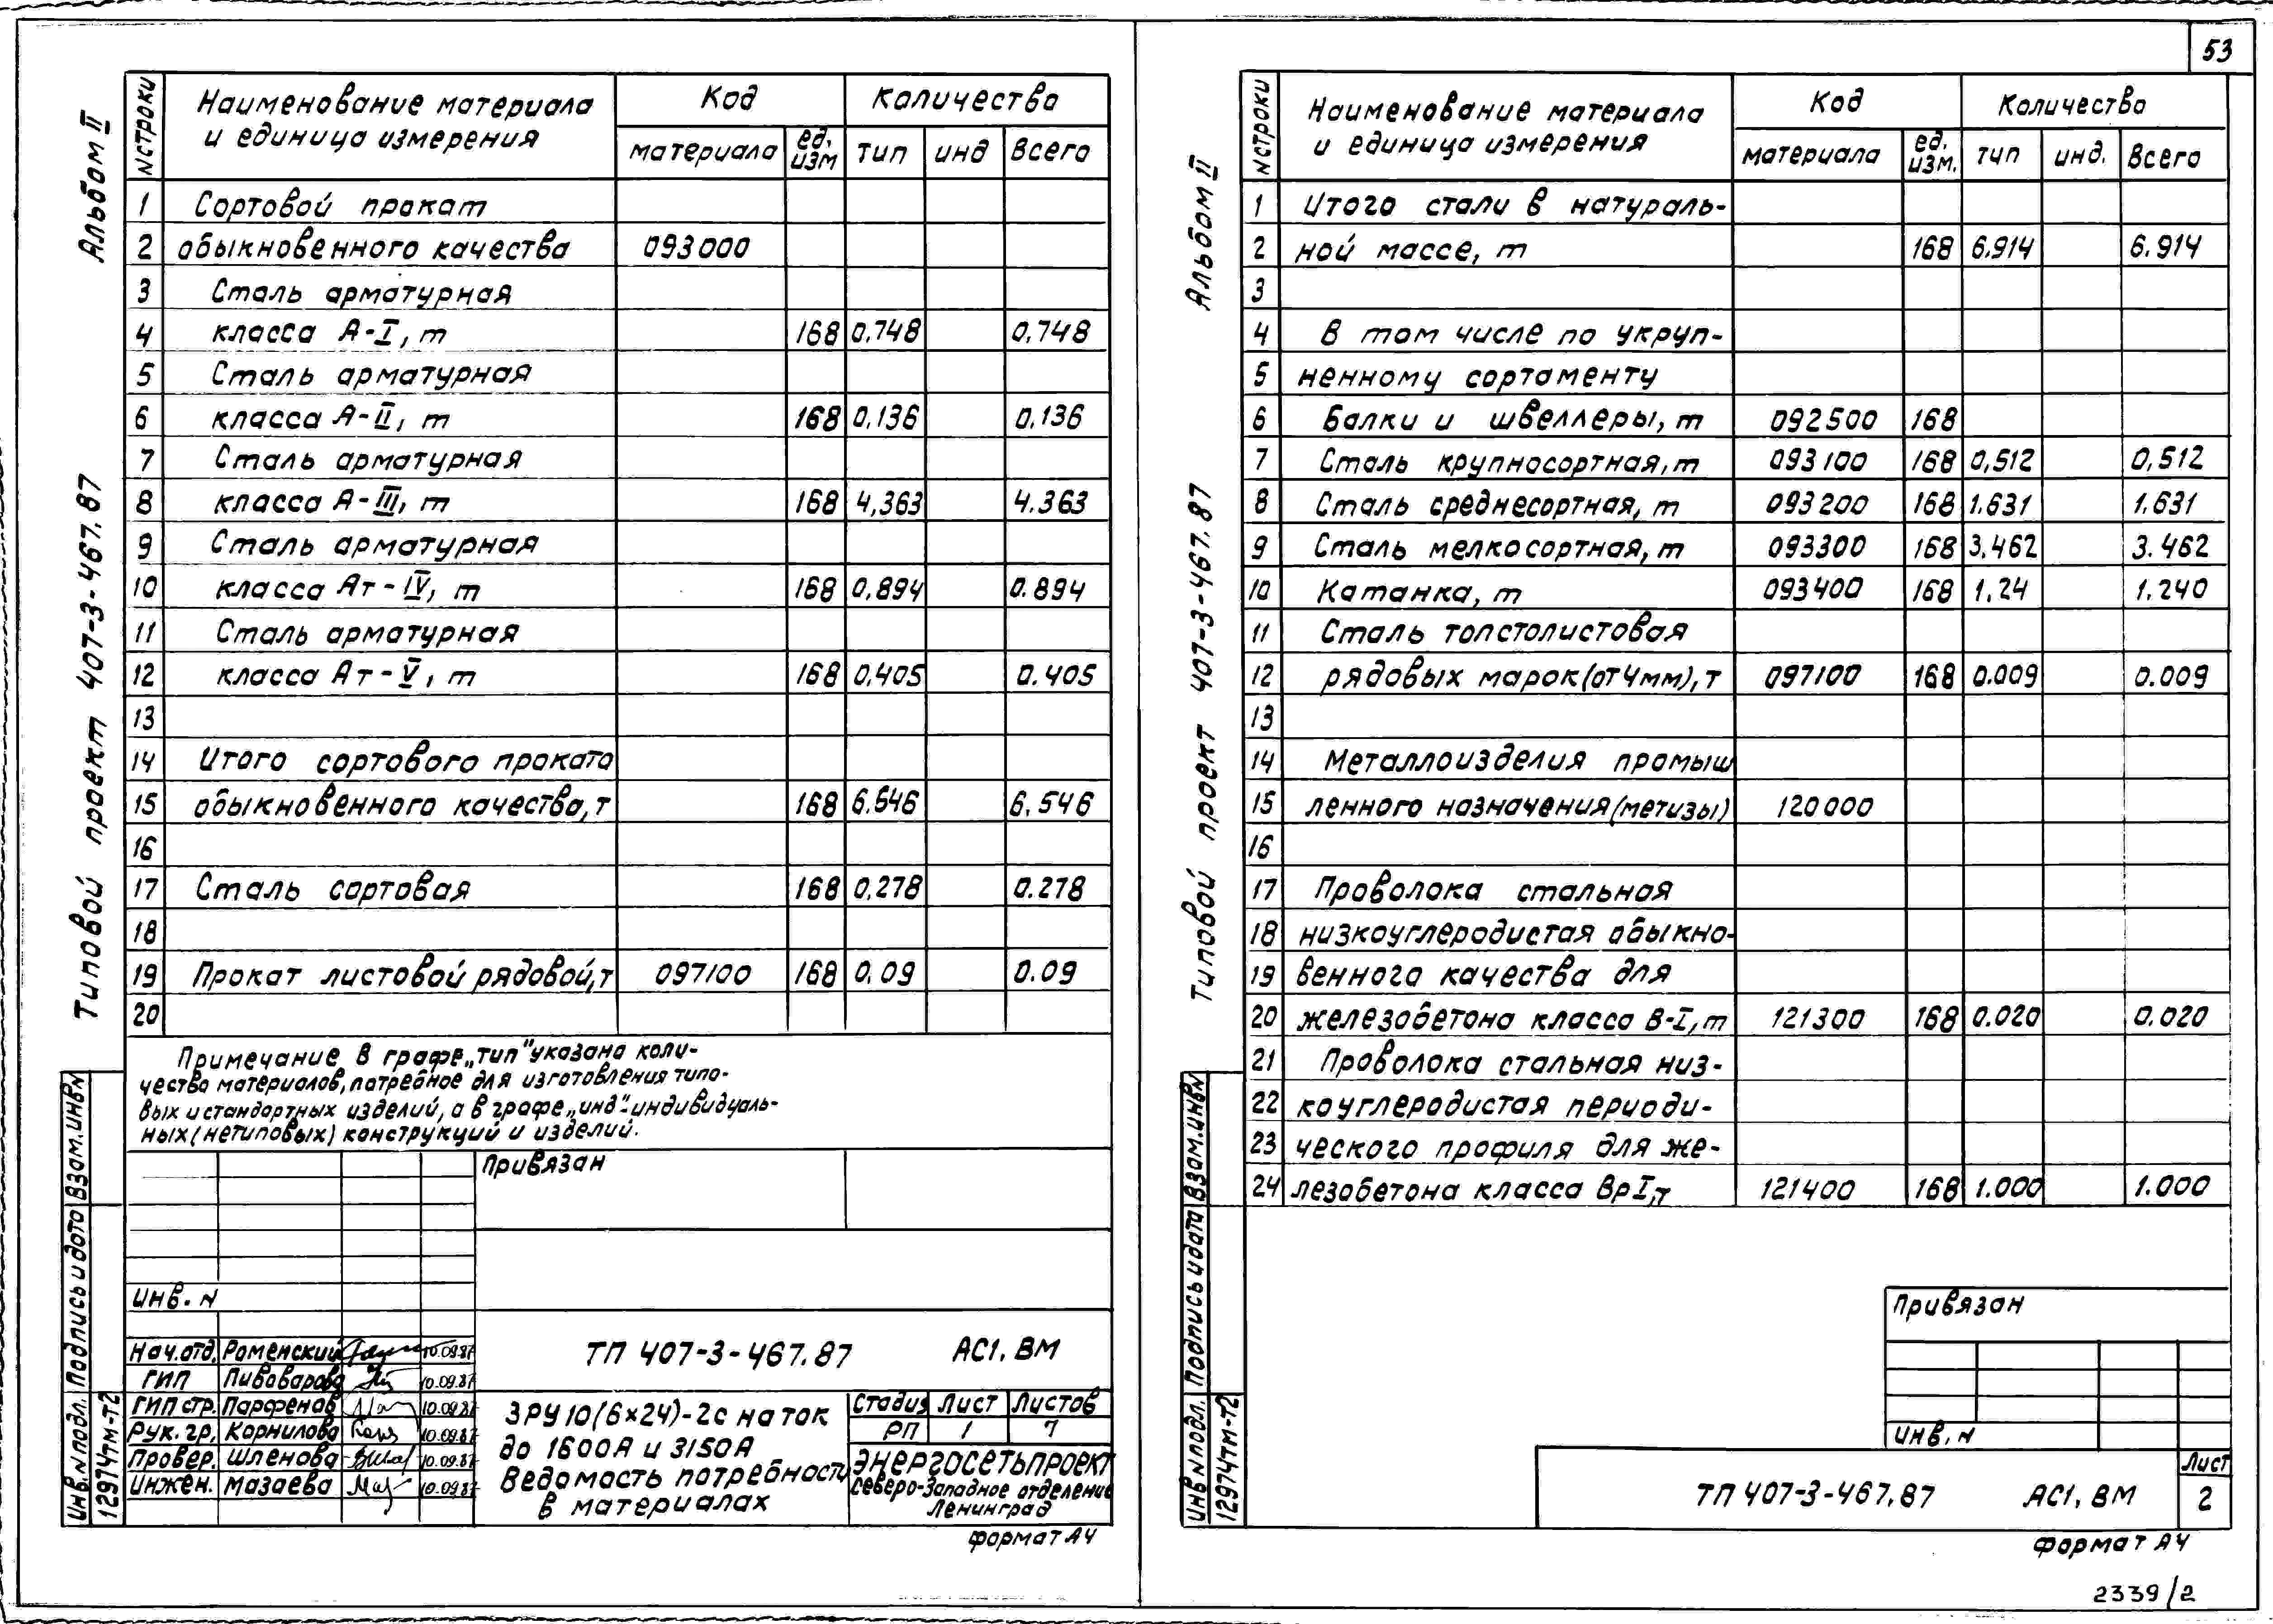 53
Альбом II
Типовой проект 407-3-467.87
N строки
Наименование материала
и единица измерения
Код
Количество
материала
ед.
изм
тип
инд
всего
1 Сортовой прокат
2 обыкновенного качества 093000
3 Сталь арматурная
4 класса А-I, т 168 0.748 0,748
5 Сталь арматурная
6 класса А-II, т 168 0,136 0,136
7 Сталь арматурная
8 класса А-III, т 168 4,363 4.363
9 Сталь арматурная
10 класса Ат-IV, т 168 0,894 0.894
11 Сталь арматурная
12 класса Ат-V, т 168 0,405 0.405
13
14 Итого сортового проката
15 обыкновенного качества, т 168 6.546 6,546
16
17 Сталь сортовая 168 0,278 0.278
18
19 Прокат листовой рядовой, т 097100 168 0,09 0.09
20
Примечание В графе „тип" указано коли-
чество материалов, потребное для изготовления типо-
вых и стандартных изделий, а в графе „инд"-индивидуаль-
ных (нетиповых) конструкций и изделий.
Привязан
Инв. N
Нач.отд. Роменский 10.09.87
ГИП Пивоварова 10.09.87
ГИП стр. Парфенов 10.09.87
Рук. гр. Корнилова 10.09.87
Провер. Шленова 10.09.87
Инжен. Мазаева 10.09.87
ТП 407-3-467.87 АС1. ВМ
ЗРУ 10(6×24)-2с на ток
до 1600А и 3150А
Ведомость потребности
в материалах
Стадия Лист Листов
РП 1 7
Энергосетьпроект
Северо-Западное отделение
Ленинград
Инв. N подл. Подпись и дата Взам. инв N
12974тм-т2
формат А4
Альбом II
Типовой проект 407-3-467.87
N строки
Наименование материала
и единица измерения
Код
Количество
материала
ед.
изм.
тип
инд.
всего
1 Итого стали в натураль-
2 ной массе, т 168 6.914 6.914
3
4 В том числе по укруп-
5 ненному сортаменту
6 Балки и швеллеры, т 092500 168
7 Сталь крупносортная, т 093100 168 0,512 0,512
8 Сталь среднесортная, т 093200 168 1.631 1.631
9 Сталь мелкосортная, т 093300 168 3.462 3.462
10 Катанка, т 093400 168 1.24 1.240
11 Сталь толстолистовая
12 рядовых марок (от 4мм), т 097100 168 0.009 0.009
13
14 Металлоизделия промыш
15 ленного назначения (метизы) 120000
16
17 Проволока стальная
18 низкоуглеродистая обыкно-
19 венного качества для
20 железобетона класса В-I, т 121300 168 0.020 0.020
21 Проволока стальная низ-
22 коуглеродистая периоди-
23 ческого профиля для же-
24 лезобетона класса ВрI, т 121400 168 1.000 1.000
Привязан
Инв. N
ТП 407-3-467.87 АС1. ВМ
Лист
2
Инв N подл. Подпись и дата Взам. инв N
12974тм-т2
формат А4
2339/2